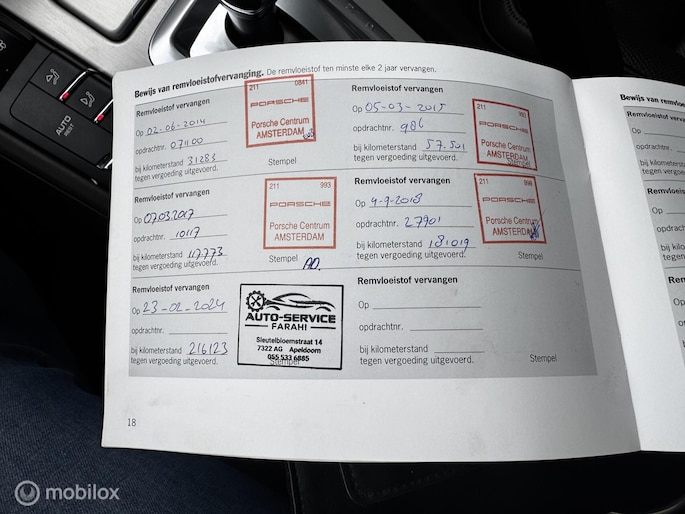 AUTO
REST
Bewijs van remvloeistofvervanging. De remvloeistof ten minste elke 2 jaar vervangen.
Remvloeistof vervangen
Op 02-06-2014
opdrachtnr. 071100
bij kilometerstand 31283
tegen vergoeding uitgevoerd.
Stempel
211 0841
PORSCHE
Porsche Centrum
AMSTERDAM
Remvloeistof vervangen
Op 05-03-2015
opdrachtnr. 986
bij kilometerstand 57.501
tegen vergoeding uitgevoerd.
Stempel
211 993
PORSCHE
Porsche Centrum
AMSTERDAM
Remvloeistof vervangen
Op 07.03.2017
opdrachtnr. 10117
bij kilometerstand 117.773
tegen vergoeding uitgevoerd.
Stempel
211 993
PORSCHE
Porsche Centrum
AMSTERDAM
Remvloeistof vervangen
Op 4-9-2018
opdrachtnr. 27901
bij kilometerstand 181019
tegen vergoeding uitgevoerd.
Stempel
211
PORSCHE
Porsche Centrum
AMSTERDAM
Remvloeistof vervangen
Op 23-02-2024
opdrachtnr.
bij kilometerstand 216123
tegen vergoeding uitgevoerd.
Stempel
AUTO-SERVICE
FARAHI
Sleutelbloemstraat 14
7322 AG Apeldoorn
055 533 6885
Remvloeistof vervangen
Op
opdrachtnr.
bij kilometerstand
tegen vergoeding uitgevoerd.
Stempel
18
Bewijs van remvloe
Remvloeistof vervangen
Op
opdrachtnr.
bij kilometerstan
tegen vergoeding
Remvloeistof ver
Op
opdrachtnr.
bij kilometers
tegen vergoed
Remvloeistof
Op
opdrachtnr.
bij kilomete
tegen vergo
mobilox